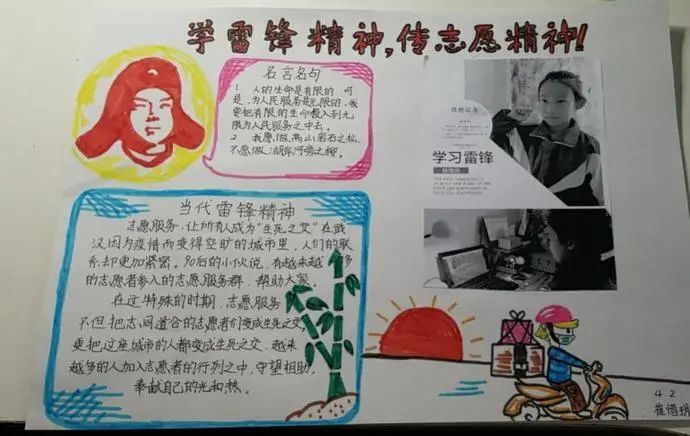 学雷锋精神,传志愿精神!
名言名句
1 人的生命是有限的,可
是,为人民服务是无限的,我
要把有限的生命投入到无
限为人民服务之中去。
2 我愿做高山岩石之松,
不愿做湖岸河旁之柳。
学习雷锋
当代雷锋精神
志愿服务,让所有人成为"生死之交"在武
汉因为疫情而变得空旷的城市里,人们的联
系却更加紧密。90后的小伙说,有越来越多
的志愿者参入的志愿服务群,帮助大家。
在这特殊的时期,志愿服务
不但把志同道合的志愿者们变成生死之交,
更把这座城市的人都变成生死之交,越来
越多的人加入志愿者的行列之中,守望相助,
奉献自己的光和热。
4.2
崔惜玥